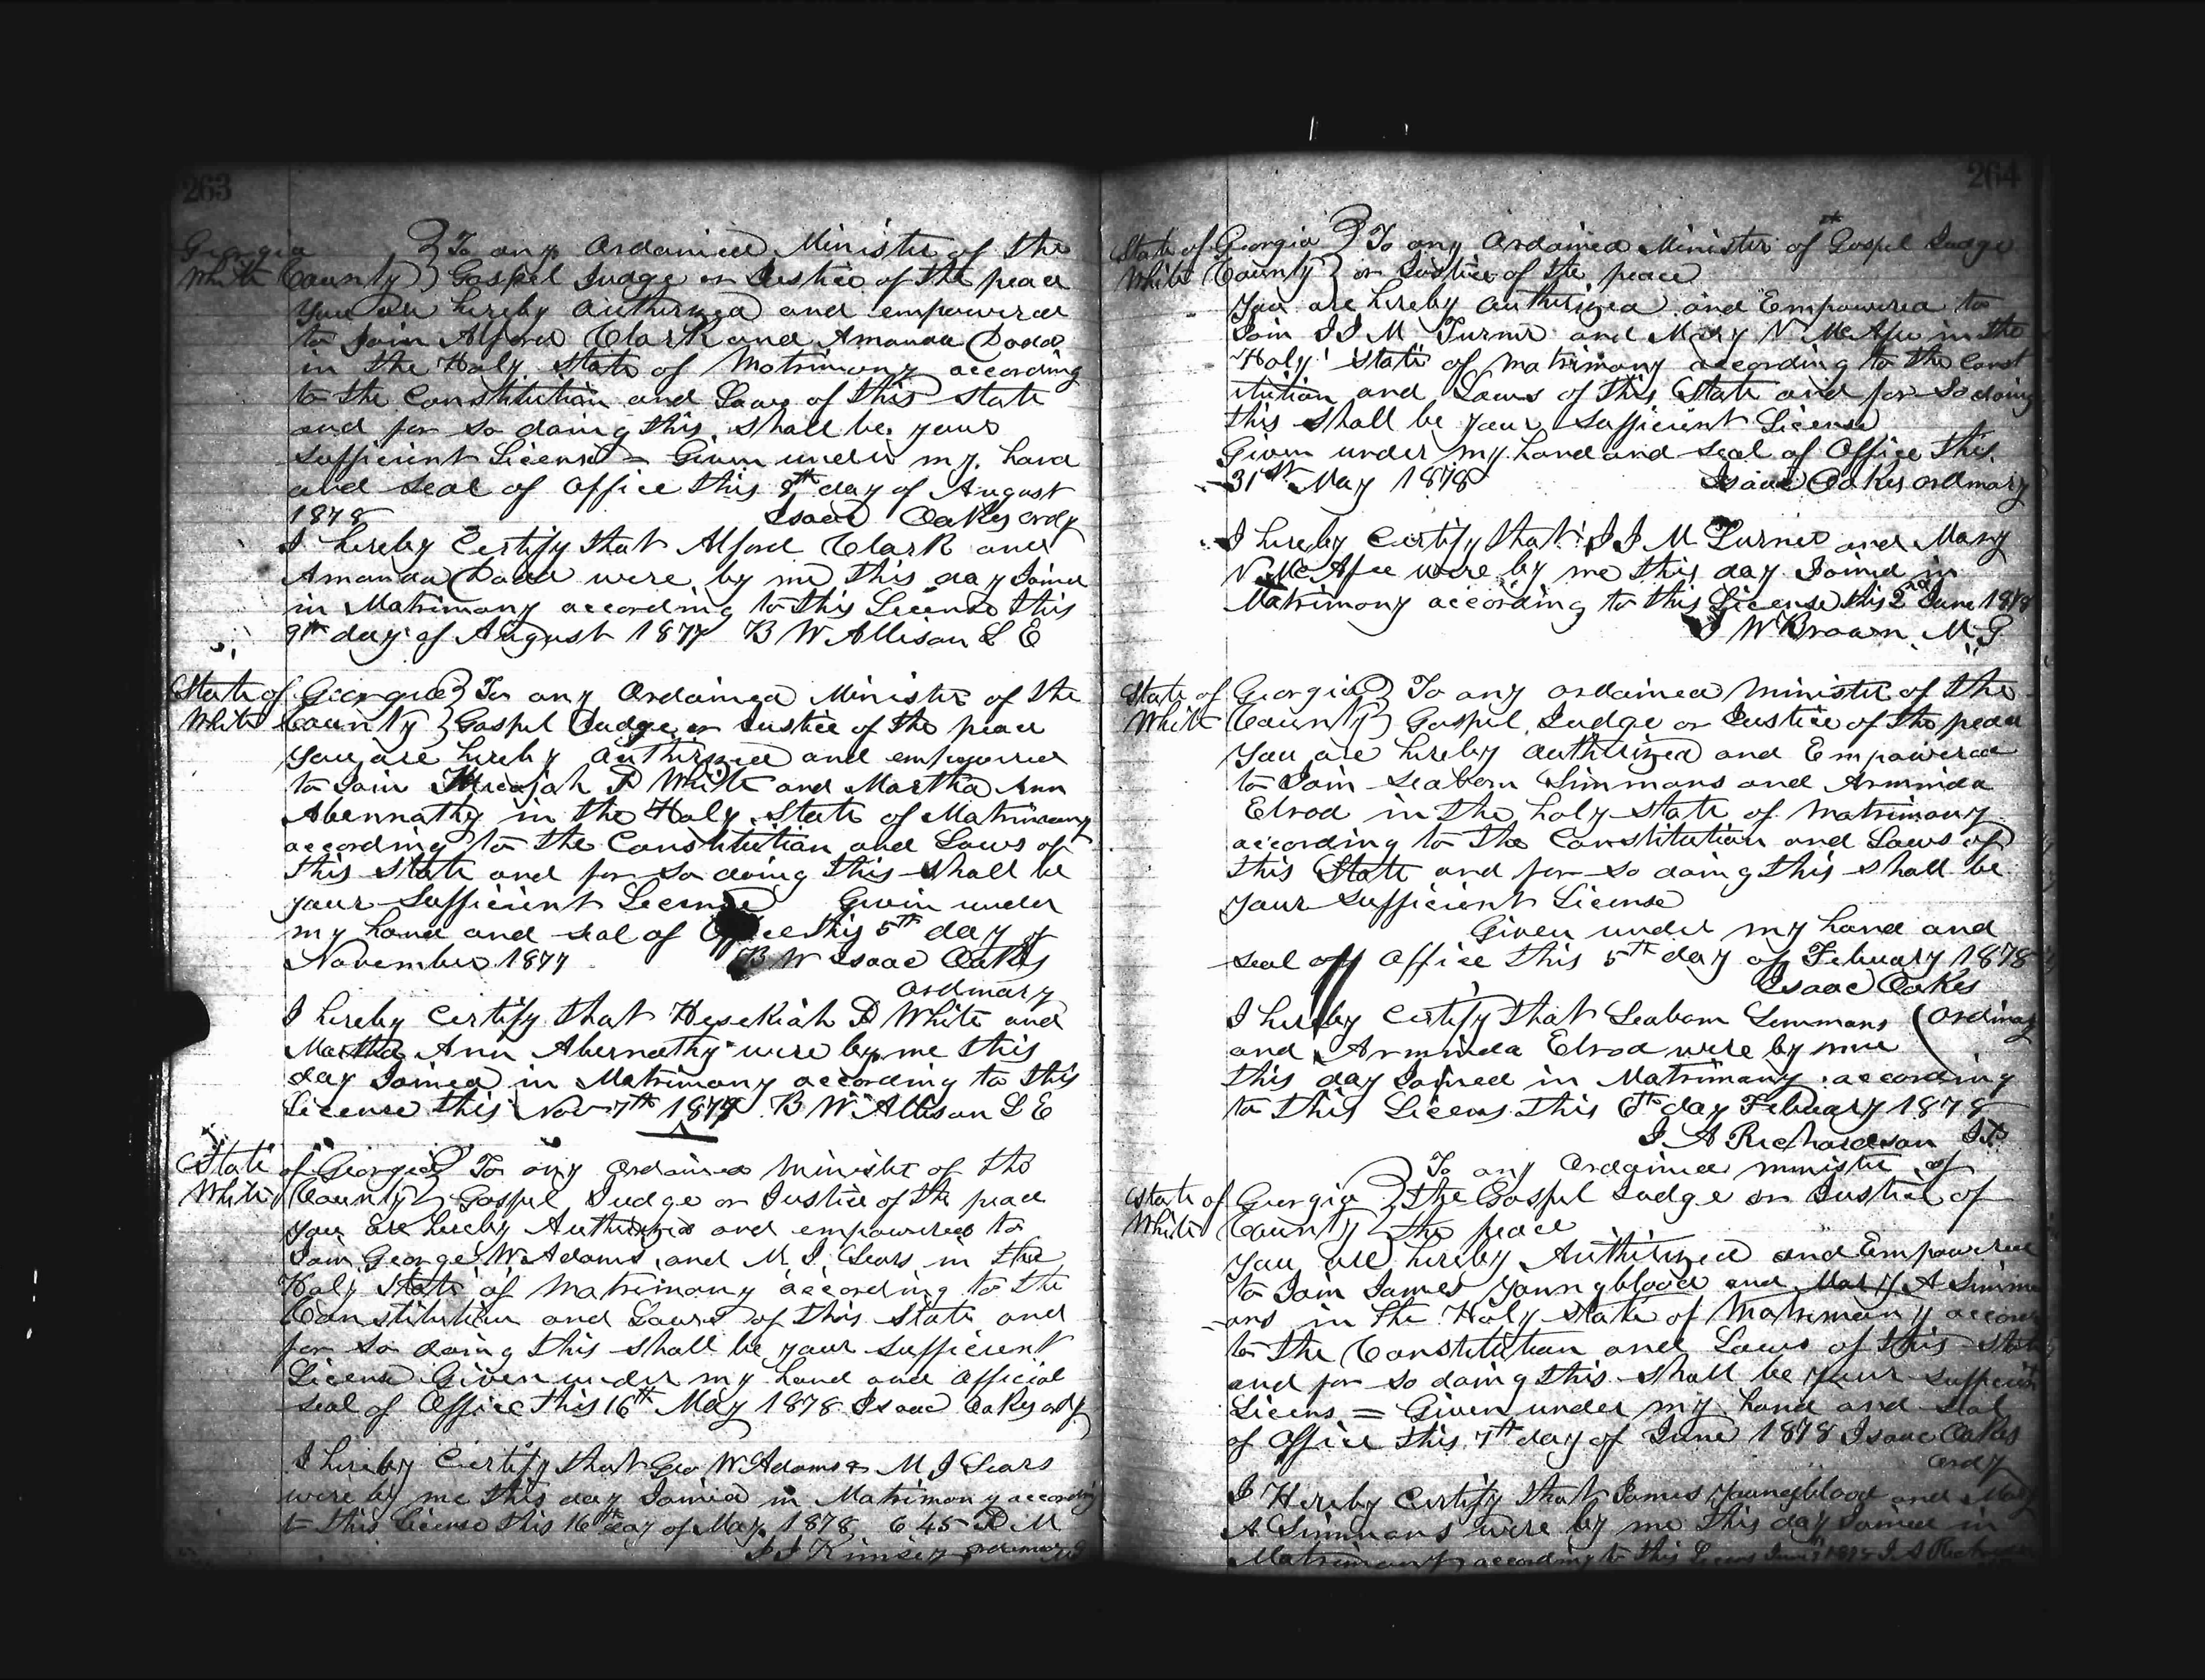 263
Georgia } To any Ordained Minister of the
White County } Gospel Judge or Justice of the peace
you are hereby Authorized and empowered
to join Alford Clark and Amanda Dodd
in the Holy State of Matrimony according
to the Constitution and Laws of this State
and for so doing this shall be your
sufficient License = Given under my hand
and seal of office this 8th day of August
1878 Isaac Oakes ordy
I hereby Certify that Alford Clark and
Amanda Dodd were by me this day Joined
in Matrimony according to this License this
9th day of August 1877 B W Allison L E
State of Georgia } To any Ordained Minister of the
White County } Gospel Judge or Justice of the peace
you are hereby Authorized and empowered
to Join P White and Martha Ann
Abernathy in the Holy State of Matrimony
according to the Constitution and Laws of
this State and for so doing this shall be
your Sufficient License Given under
my hand and seal of Office this 5th day of
November 1877 B W Isaac Oakes
Ordinary
I hereby Certify that Hesekiah P White and
Martha Ann Abernathy were by me this
day Joined in Matrimony according to this
License this Nov 7th 1877 B W Allison L E
State of Georgia } To any Ordained Minister of the
White County } Gospel Judge or Justice of the peace
you are hereby Authorized and empowered to
Join George W Adams and M J Sears in the
Holy State of Matrimony according to the
Constitution and Laws of this State and
for so doing this shall be your sufficient
License Given under my hand and official
seal of Office this 16th May 1878 Isaac Oakes ordy
I hereby Certify that Geo W Adams & M J Sears
were by me this day Joined in Matrimony according
to this License this 16th day of May 1878 6 45 P M
J J Kimsey
264
State of Georgia } To any Ordained Minister of the Gospel Judge
White County } or Justice of the peace
You are hereby Authorized and Empowered to
Join J J M Turner and Mary N McAfee in the
Holy State of Matrimony according to the Const
itution and Laws of this State and for so doing
this shall be your sufficient License
Given under my hand and seal of Office this
31st May 1878 Isaac Oakes Ordinary
I hereby Certify that J J M Turner and Mary
N McAfee were by me this day Joined in
Matrimony according to this License this 2nd June 1878
J W Brown M.G.
State of Georgia } To any ordained Minister of the
White County } Gospel Judge or Justice of the peace
You are hereby Authorized and Empowered
to Join Seaborn Simmans and Arminda
Elrod in the holy state of matrimony
according to the Constitution and Laws of
this State and for so doing this shall be
your sufficient License
Given under my hand and
seal off Office this 5th day of Febuary 1878
Isaac Oakes
I hereby Certify that Seaborn Simmans (Ordinary
and Arminda Elrod were by me
this day Joined in Matrimony according
to this Licens this 6th day Febuary 1878
J A Richardson J.P.
To any Ordained minister of
State of Georgia } the Gospel Judge or Justice of
White County } the peace
you are hereby Authorized and Empowered
to Join James Youngblood and Mary A Simm
ans in the Holy State of Matrimony accord
to the Constitution and Laws of this State
and for so doing this shall be your sufficient
Licens = Given under my hand and seal
of Office this 7th day of June 1878 Isaac Oakes
Ordy
I Hereby Certify that James Youngblood and Mary
A Simmans were by me this day Joined in
Matrimony according to this Licens June 1878 J A Richardson